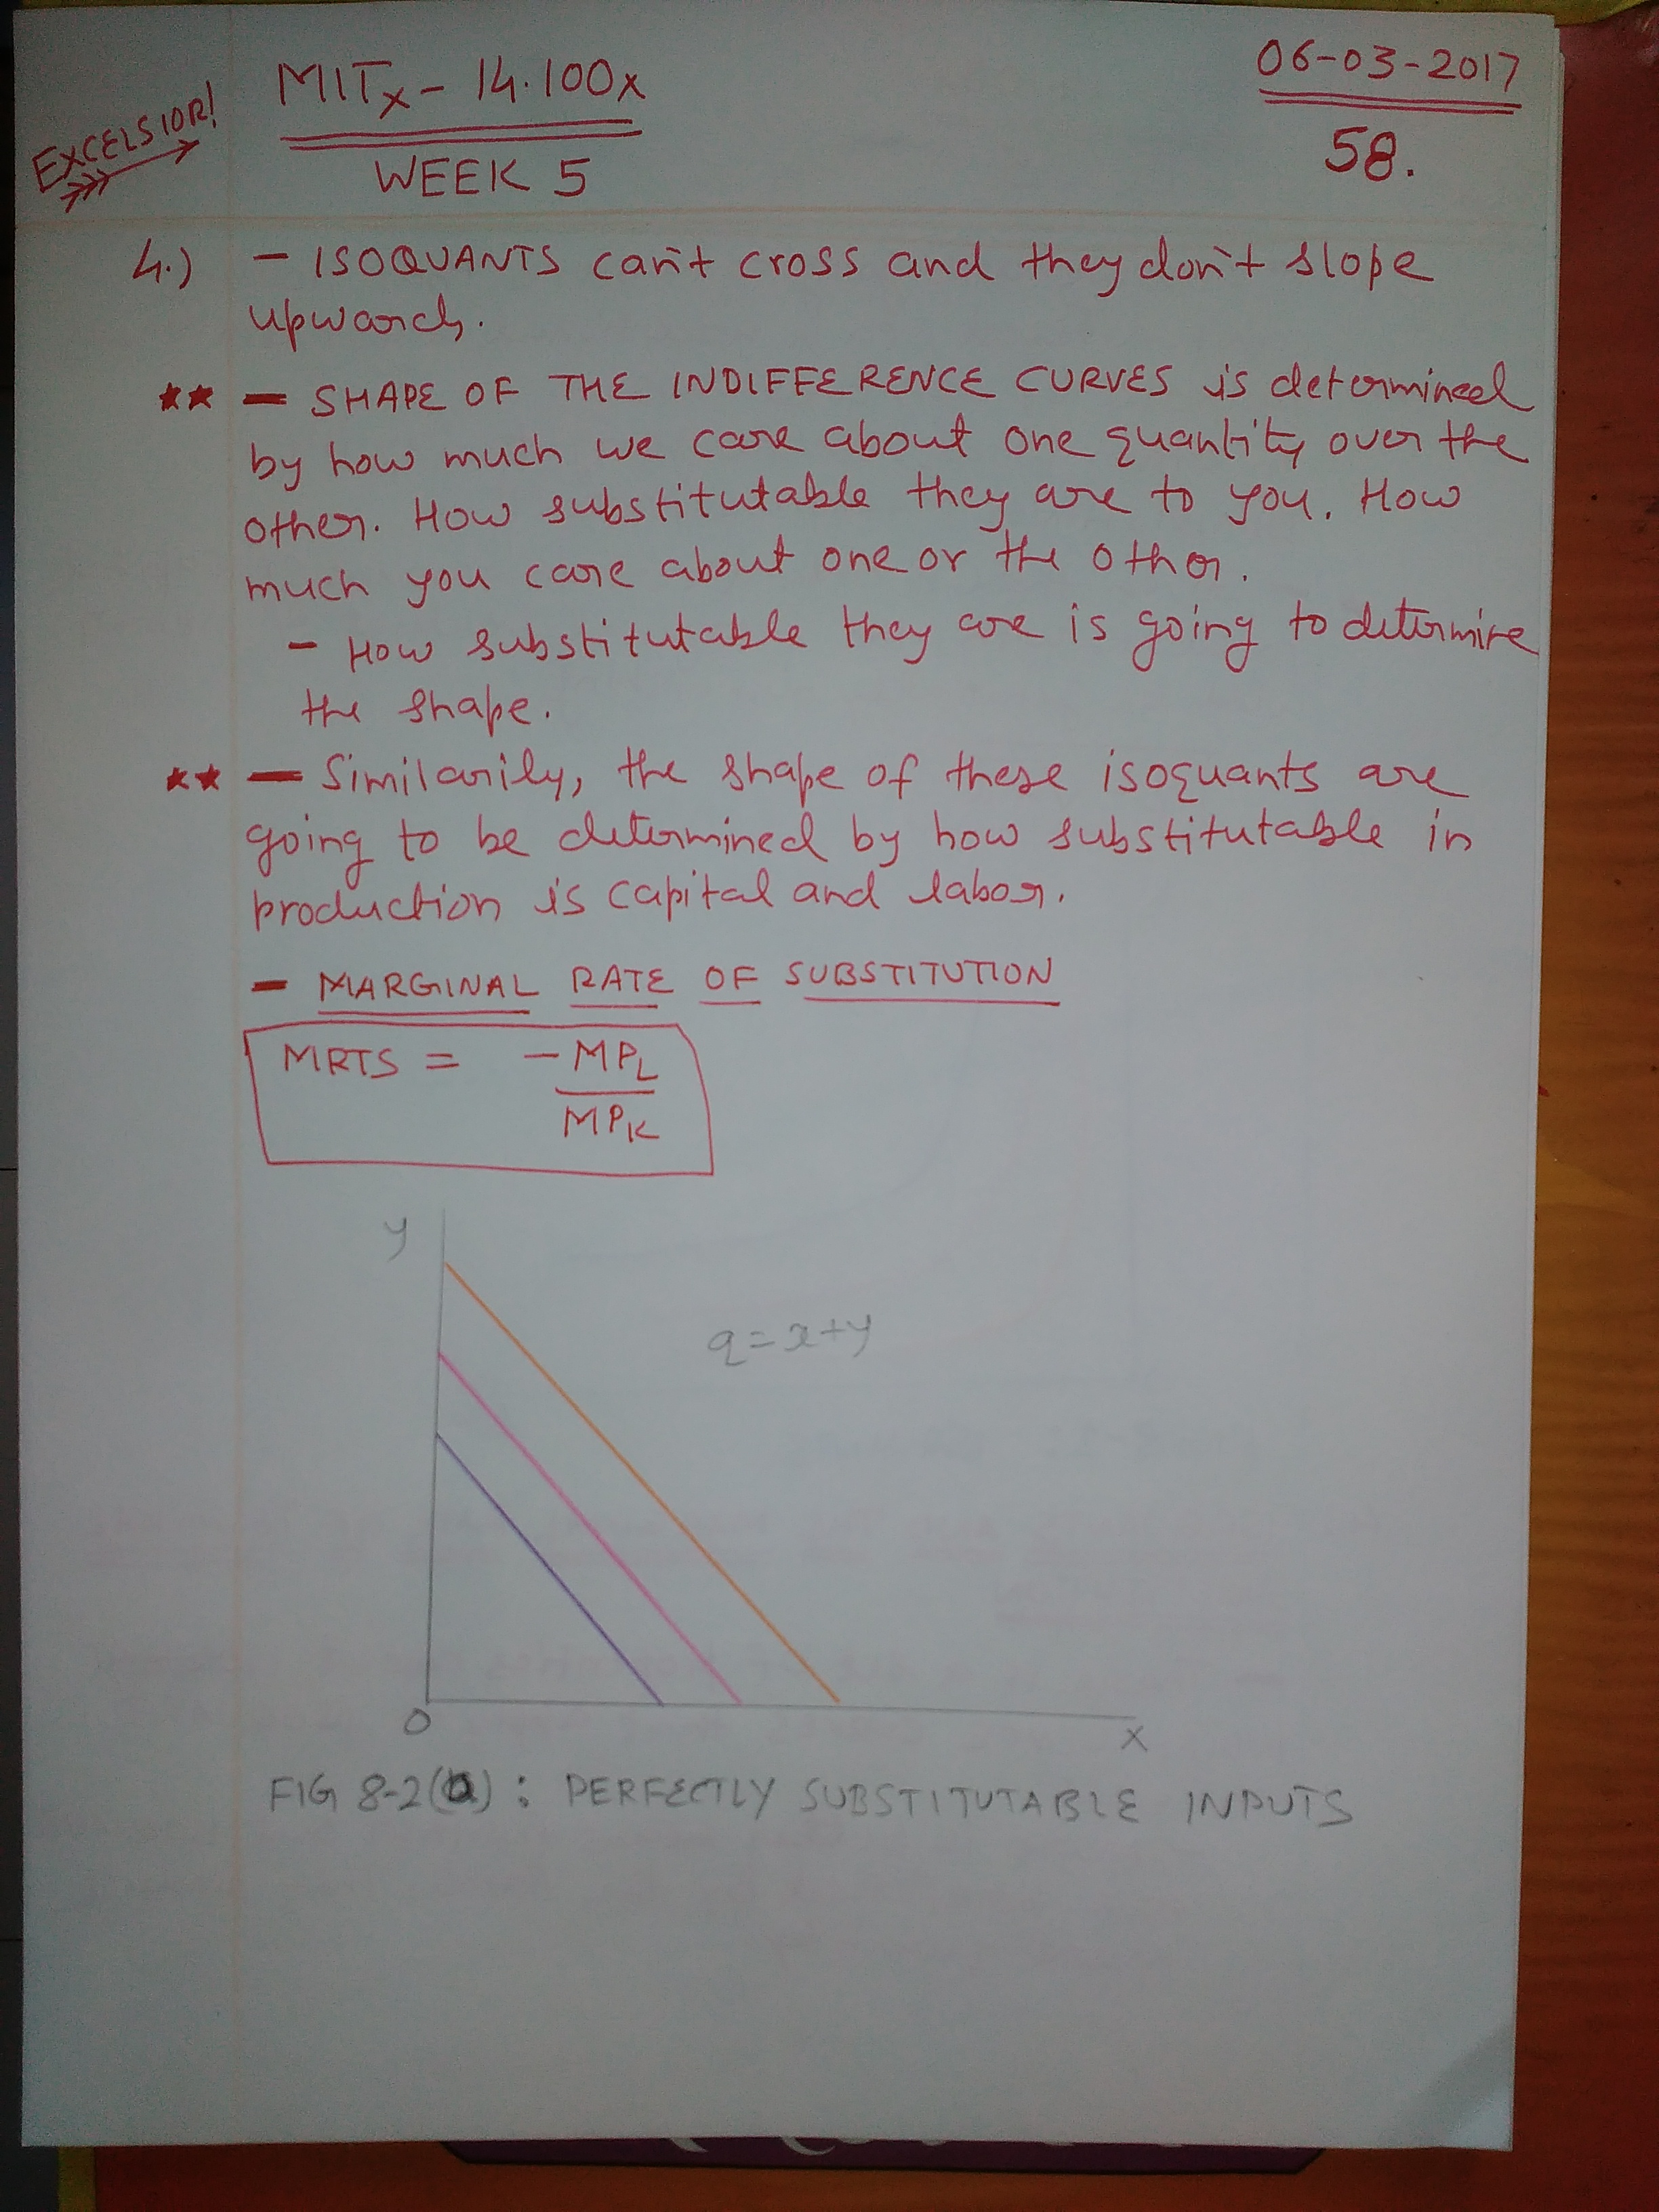 EXCELSIOR!
MITx - 14.100x
06-03-2017
WEEK 5
58.
4.) - ISOQUANTS can't cross and they don't slope
upwards.
★★ - SHAPE OF THE INDIFFERENCE CURVES is determined
by how much we care about one quantity over the
other. How substitutable they are to you. How
much you care about one or the other.
- How substitutable they are is going to determine
the shape.
★★ - Similarily, the shape of these isoquants are
going to be determined by how substitutable in
production is capital and labor.
- MARGINAL RATE OF SUBSTITUTION
MRTS = -MPL
MPK
y
q=x+y
0
x
FIG 8-2(a): PERFECTLY SUBSTITUTABLE INPUTS